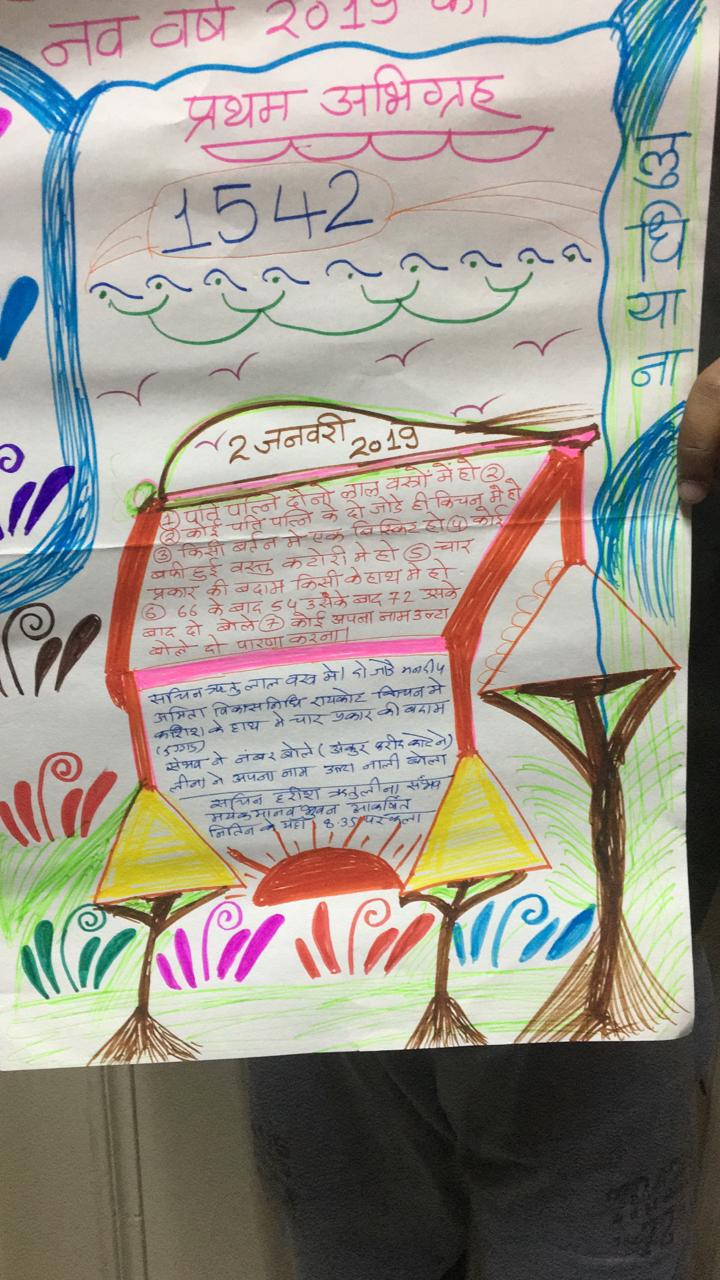 नव वर्ष 2019 का
प्रथम अभिग्रह
1542
लुधियाना
2 जनवरी 2019
① पति पत्नि दोनो लाल वस्त्रों में हो ②
② कोई पति पत्नि के दो जोडे ही किचन मे हो
③ किसी बर्तन मे एक बिस्किट हो ④ कोई
बची हुई वस्तु कटोरी मे हो ⑤ चार
प्रकार की बदाम किसी के हाथ मे हो
⑥ 66 के बाद 54 उसके बाद 72 उसके
बाद दो बोले ⑦ कोई अपना नाम उल्टा
बोले दो पारणा करना।
सचिन ऋतु लाल वस्त्र मे। दो जोडे मनदीप
अमिता विकास निधि रायकोट किचन मे
कशिश के हाथ मे चार प्रकार की बदाम
संभव ने नंबर बोले (अंकुर फरीदकोट ने)
लीना ने अपना नाम उल्टा नाली बोला
सचिन हरीश ऋतु लीना संभव
मयंक मानव भुवन आकर्षित
नितिन के यहाँ 8:35 पर फला